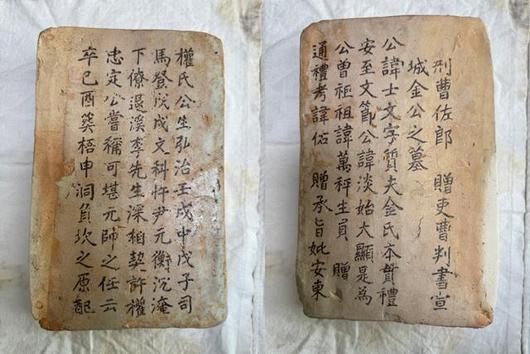 刑曹佐郎 贈吏曹判書宣
城金公之墓
公諱士文字質夫金氏本貫禮
安至文節公諱淡始大顯是爲
公曾祖祖諱萬秤生員 贈
通禮考諱佑 贈承旨妣安東
權氏公生弘治壬戌中戊子司
馬登文科忤尹元衡沉淹
下僚退溪李先生深相契許權
忠定公嘗稱可堪元帥之任云
卒己酉葬梧申洞負坎之原配